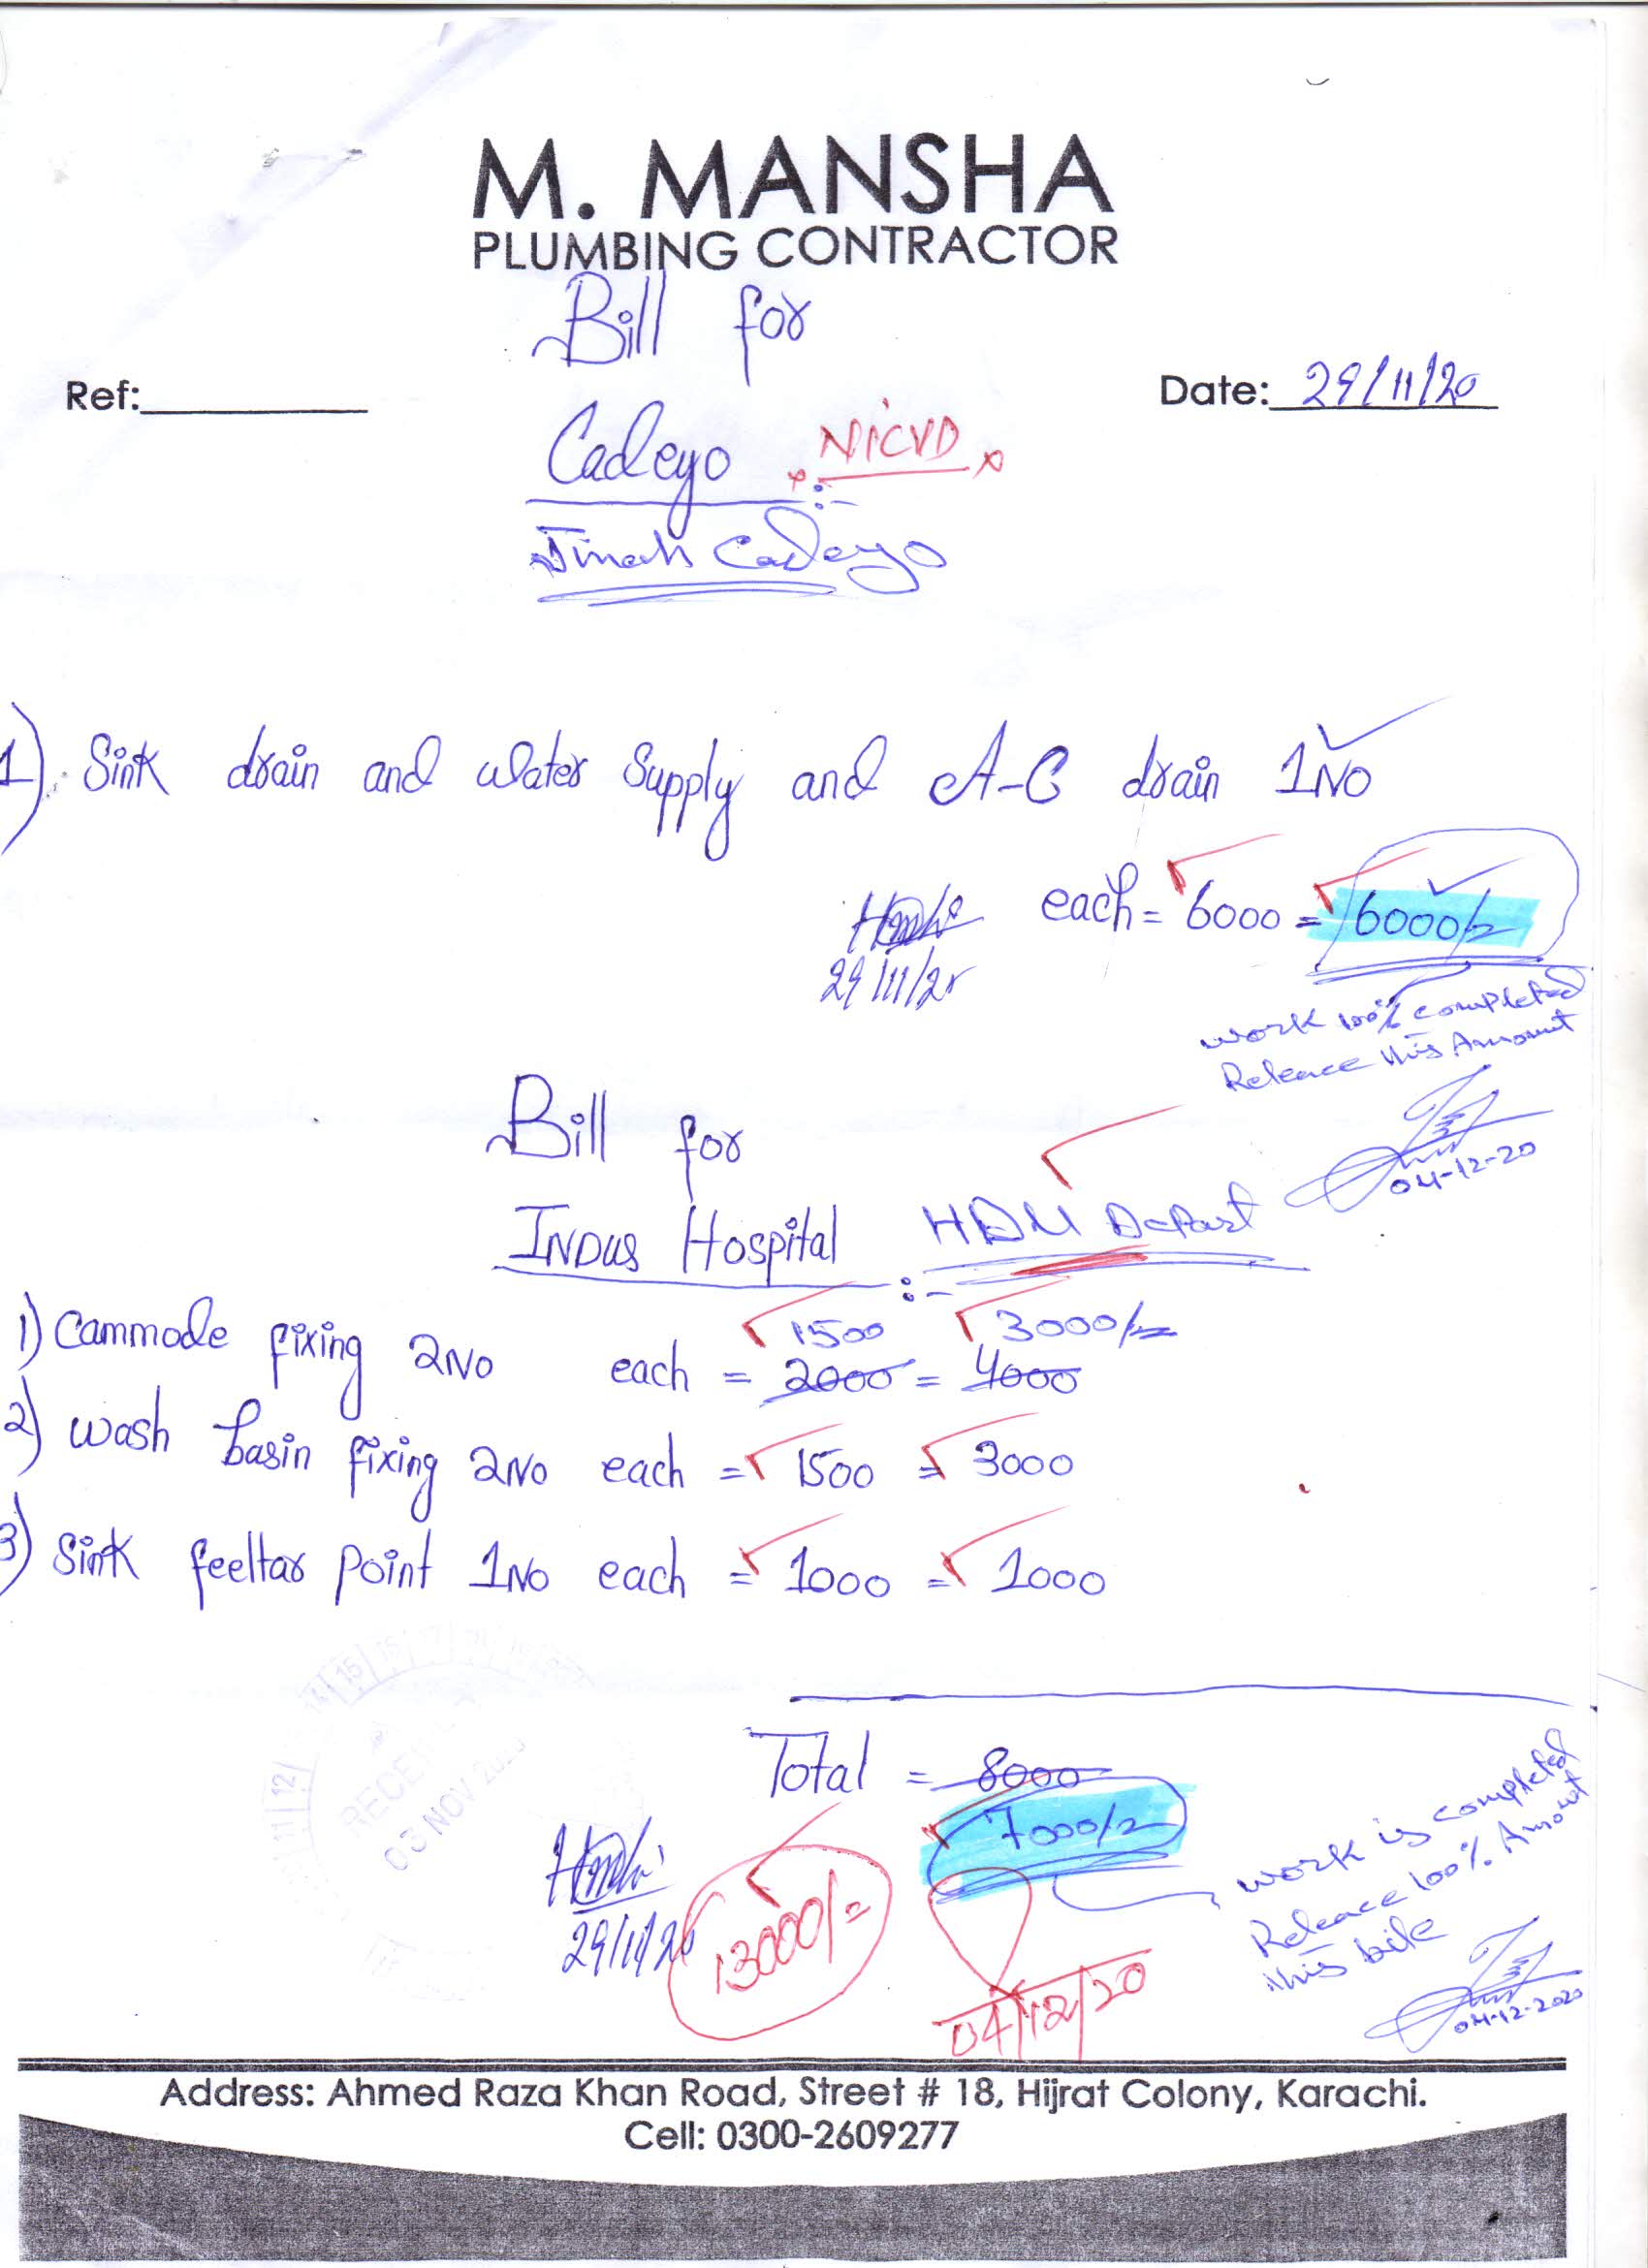 M. MANSHA
PLUMBING CONTRACTOR
Bill for
Ref:
Date: 29/11/20
Cadeyo NiCVD
Jinah Cadeyo
1) Sink drain and water Supply and A-C drain 1No
each = 6000 = 6000/=
29/11/20
work 100% completed
Releace this Amount
04-12-20
Bill for
INDUS Hospital HDU Depart
1500 3000/=
1) Cammode fixing 2No each = 2000 = 4000
2) wash basin fixing 2No each = 1500 = 3000
3) Sink feeltar point 1No each = 1000 = 1000
RECEI
03 NOV
Total = 8000
7000/=
work is completed
Releace 100% Amount
this bile
04-12-2020
29/11/20
13000/=
04/12/20
Address: Ahmed Raza Khan Road, Street # 18, Hijrat Colony, Karachi.
Cell: 0300-2609277